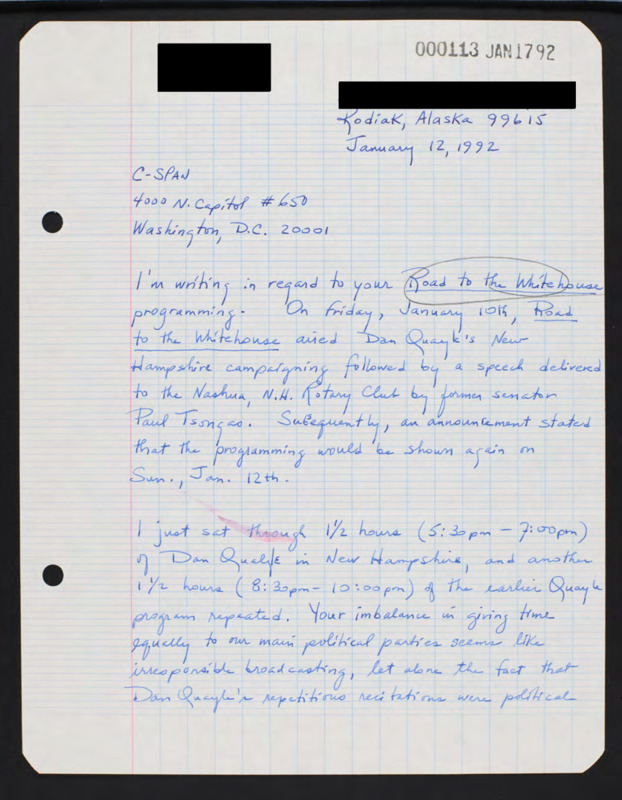 000113 JAN1792
Kodiak, Alaska 99615
January 12, 1992
C-SPAN
4000 N. Capitol #650
Washington, D.C. 20001
I'm writing in regard to your Road to the Whitehouse
programming. On Friday, January 10th, Road
to the Whitehouse aired Dan Quayle's New
Hampshire campaigning followed by a speech delivered
to the Nashua, N.H. Rotary Club by former senator
Paul Tsongas. Subsequently, an announcement stated
that the programming would be shown again on
Sun., Jan. 12th.
I just sat through 1½ hours (5:30pm - 7:00pm)
of Dan Qualye in New Hampshire, and another
1½ hours (8:30pm - 10:00pm) of the earlier Quayle
program repeated. Your imbalance in giving time
equally to our main political parties seems like
irresponsible broadcasting, let alone the fact that
Dan Quayle's repetitious recitations were political